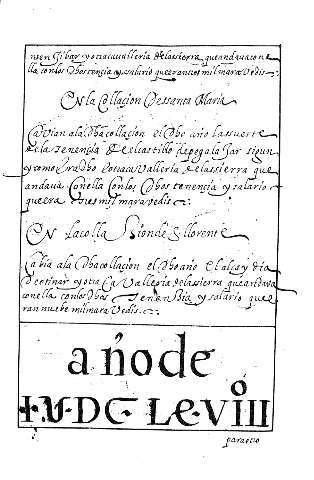 nen Jibar y otra cavalleria de la sierra que andava con e
lla con los dhos tenencia y salario que eran tres mil maravedis
En la Collacion de santa Maria
Cavian a la dha collacion el dho año la suerte
de la tenencia del castillo de pogalajar
y otra cavalleria de la sierra que
andava con ella con los dhos tenencia y salario
que era tres mil maravedis
En la colla cion de S llorente
Cabia a la dha collacion el dho año el alcaydia
y otra cavalleria de la sierra que andava
con ella con los dhos tenencia y salario que
ran nuebe mil maravedis
año de